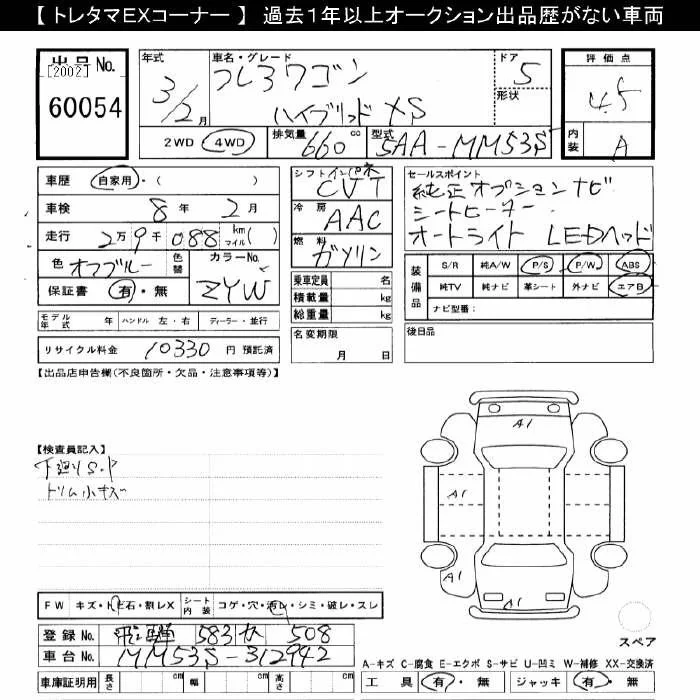 【 トレタマEXコーナー 】 過去1年以上オークション出品歴がない車両
出品 No. [2002] 60054
年式 3/2月
車名・グレード フレアワゴン ハイブリッド XS
ドア 5
形状
評価点 4.5
内装 A
2WD 4WD 排気量 660 cc 型式 5AA-MM53S
車歴 自家用・( )
車検 8年 2月
走行 2万9千088 km マイル( )
色 オフブルー 色替 カラーNo. ZYW
保証書 有・無
シフト インパネ CVT
冷房 AAC
燃料 ガソリン
乗車定員 名
積載量 kg
総重量 kg
名変期限 月 日
セールスポイント
純正オプションナビ
シートヒーター
オートライト LEDヘッド
装備品 S/R 純A/W P/S P/W ABS
純TV 純ナビ 革シート 外ナビ エアB
ナビ型番:
後日品
モデル年式 年 ハンドル 左・右 ディーラー・並行
リサイクル料金 10330 円 預託済
【出品店申告欄(不良箇所・欠品・注意事項等)】
【検査員記入】
下廻りS.P
トリム小キズ
A1
A1
A1
スペア
FW キズ・トビ石・割レX シート内装 コゲ・穴・汚レ・シミ・破レ・スレ
登録 No. 飛騨 583 か 508
車台 No. MM53S-312942
車庫証明用 長さ cm 幅 cm 高さ cm
A-キズ C-腐食 E-エクボ S-サビ U-凹ミ W-補修 XX-交換済
工具 有・無 ジャッキ 有・無